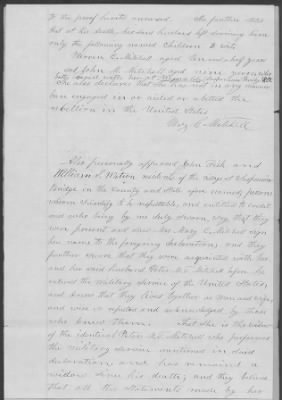 to the proof hereto annexed. She further states
that at his death, her said husband left surviving him
only the following named Children to wit:
C. Mitchell aged ten and a half years
and John M. Mitchell aged nine years who
She also declares that she has not in any manner
been engaged in or aided or abetted the
rebellion in the United States
Mary C. Mitchell
Also personally appeared John Fish and
William S. Watson residents of the village of
Bridge in the County and State afore named, persons
whom I certify to be respectable, and entitled to credit
and who being by me duly sworn, say that they
were present and saw Mrs. Mary C. Mitchell sign
her name to the foregoing declaration; and they
further swear that they were acquainted with her
and her said husband Peter Mc Mitchell before he
entered the military service of the United States,
and know that they lived together as man and wife,
and were so reputed and acknowledged by those
who knew them. That she is the widow
of the identical Peter Mc Mitchell who performed
the military service mentioned in said
declaration and has remained a
widow since his death; and they believe
that all the statements made by her